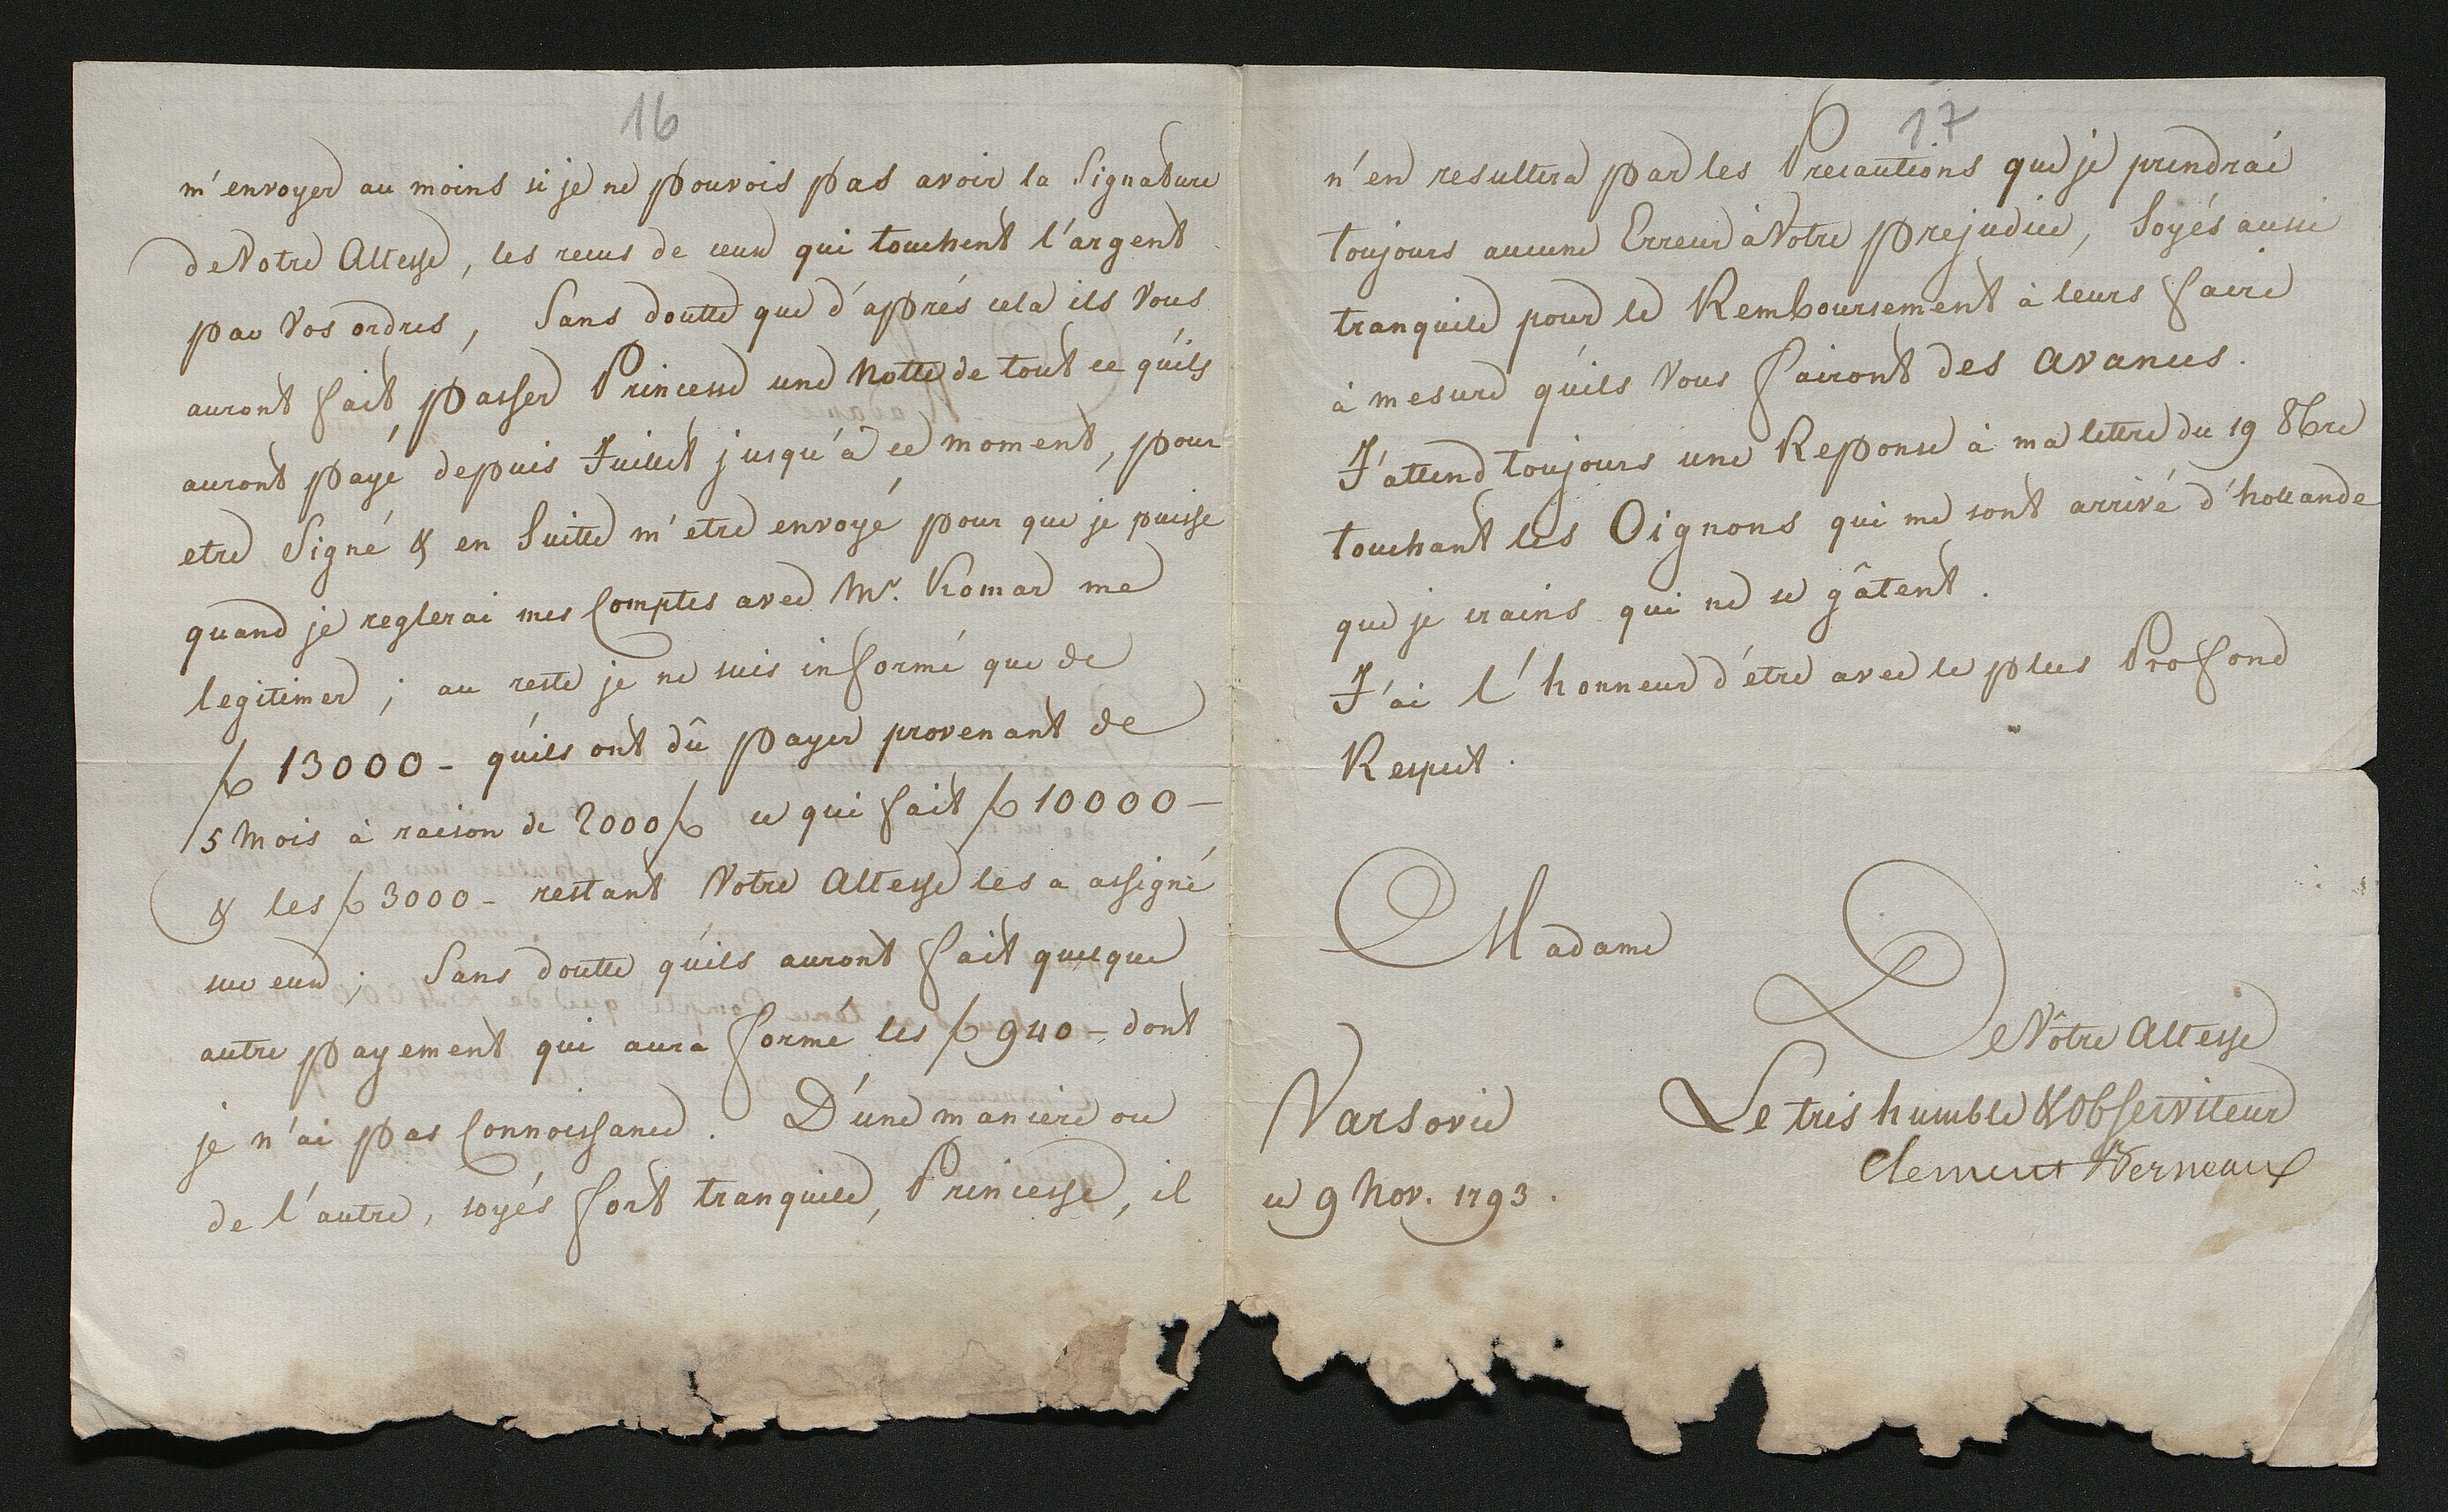 16
m'envoyer au moins si je ne pouvois pas avoir la Signature
de Votre Altesse, les recus de ceux qui touchent l'argent
par Vos ordres, Sans doutte que d'aprés cela ils Vous
auront fait passer Princesse une Notte de tout ce qu'ils
auront payé depuis Juillet jusqu'à ce moment, pour
etre Signé & en Suitte m'etre envoyé pour que je puisse
quand je reglerai mes Comptes avec Mr. Komar me
legitimer; au reste je ne suis informé que de
# 13000 - qu'ils ont dû payer provenant de
5 Mois à raison de 2000 # ce qui fait # 10000 -
& les # 3000 - restant Votre Altesse les a assigné
sur eux; Sans doutte qu'ils auront fait quelque
autre payement qui aura formé les # 940 - dont
je n'ai pas Connoissance. D'une maniere ou
de l'autre, soyés fort tranquile, Princesse, il
17
n'en resultera par les Precautions que je prendrai
toujours aucune Erreur à Votre prejudice, Soyés aussi
tranquile pour le Remboursement à leurs faire
à mesure qu'ils Vous fairont des avances.
J'attend toujours une Reponse à ma lettre du 19 8bre
touchant les Oignons qui me sont arrivé d'hollande
que je crains qui ne se gâtent.
J'ai l'honneur d'étre avec le plus Profond
Respect.
Madame
De Vôtre Altesse
Varsovie
Le tres humble & Obsserviteur
Clement Berneaux
ce 9 Nov. 1793.